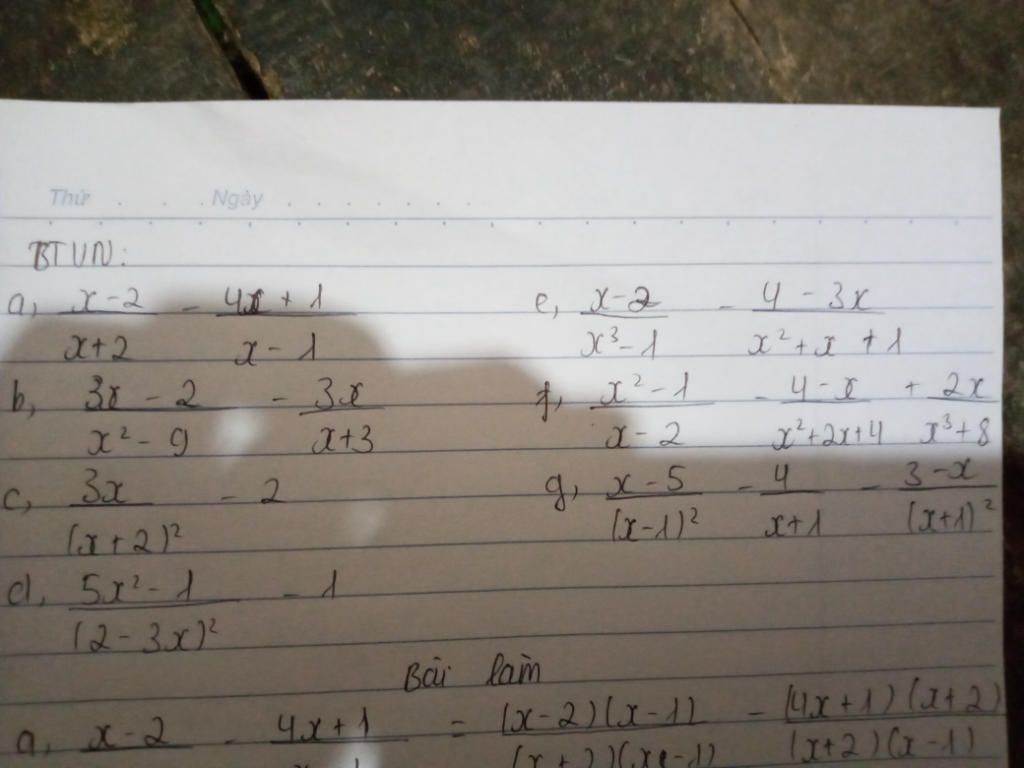 Thứ . . . . Ngày . . . . . . .
BTVN:
a, (x-2)/(x+2) - (4x+1)/(x-1)
b, (3x-2)/(x²-9) - 3x/(x+3)
c, 3x/(x+2)² - 2
d, (5x²-1)/(2-3x)² - 1
e, (x-2)/(x³-1) - (4-3x)/(x²+x+1)
f, (x²-1)/(x-2) - (4-x)/(x²+2x+4) + 2x/(x³+8)
g, (x-5)/(x-1)² - 4/(x+1) - (3-x)/(x+1)²
Bài làm
a, (x-2)/ - (4x+1)/(x-1) = (x-2)(x-1)/(x+2)(x-1) - (4x+1)(x+2)/(x+2)(x-1)